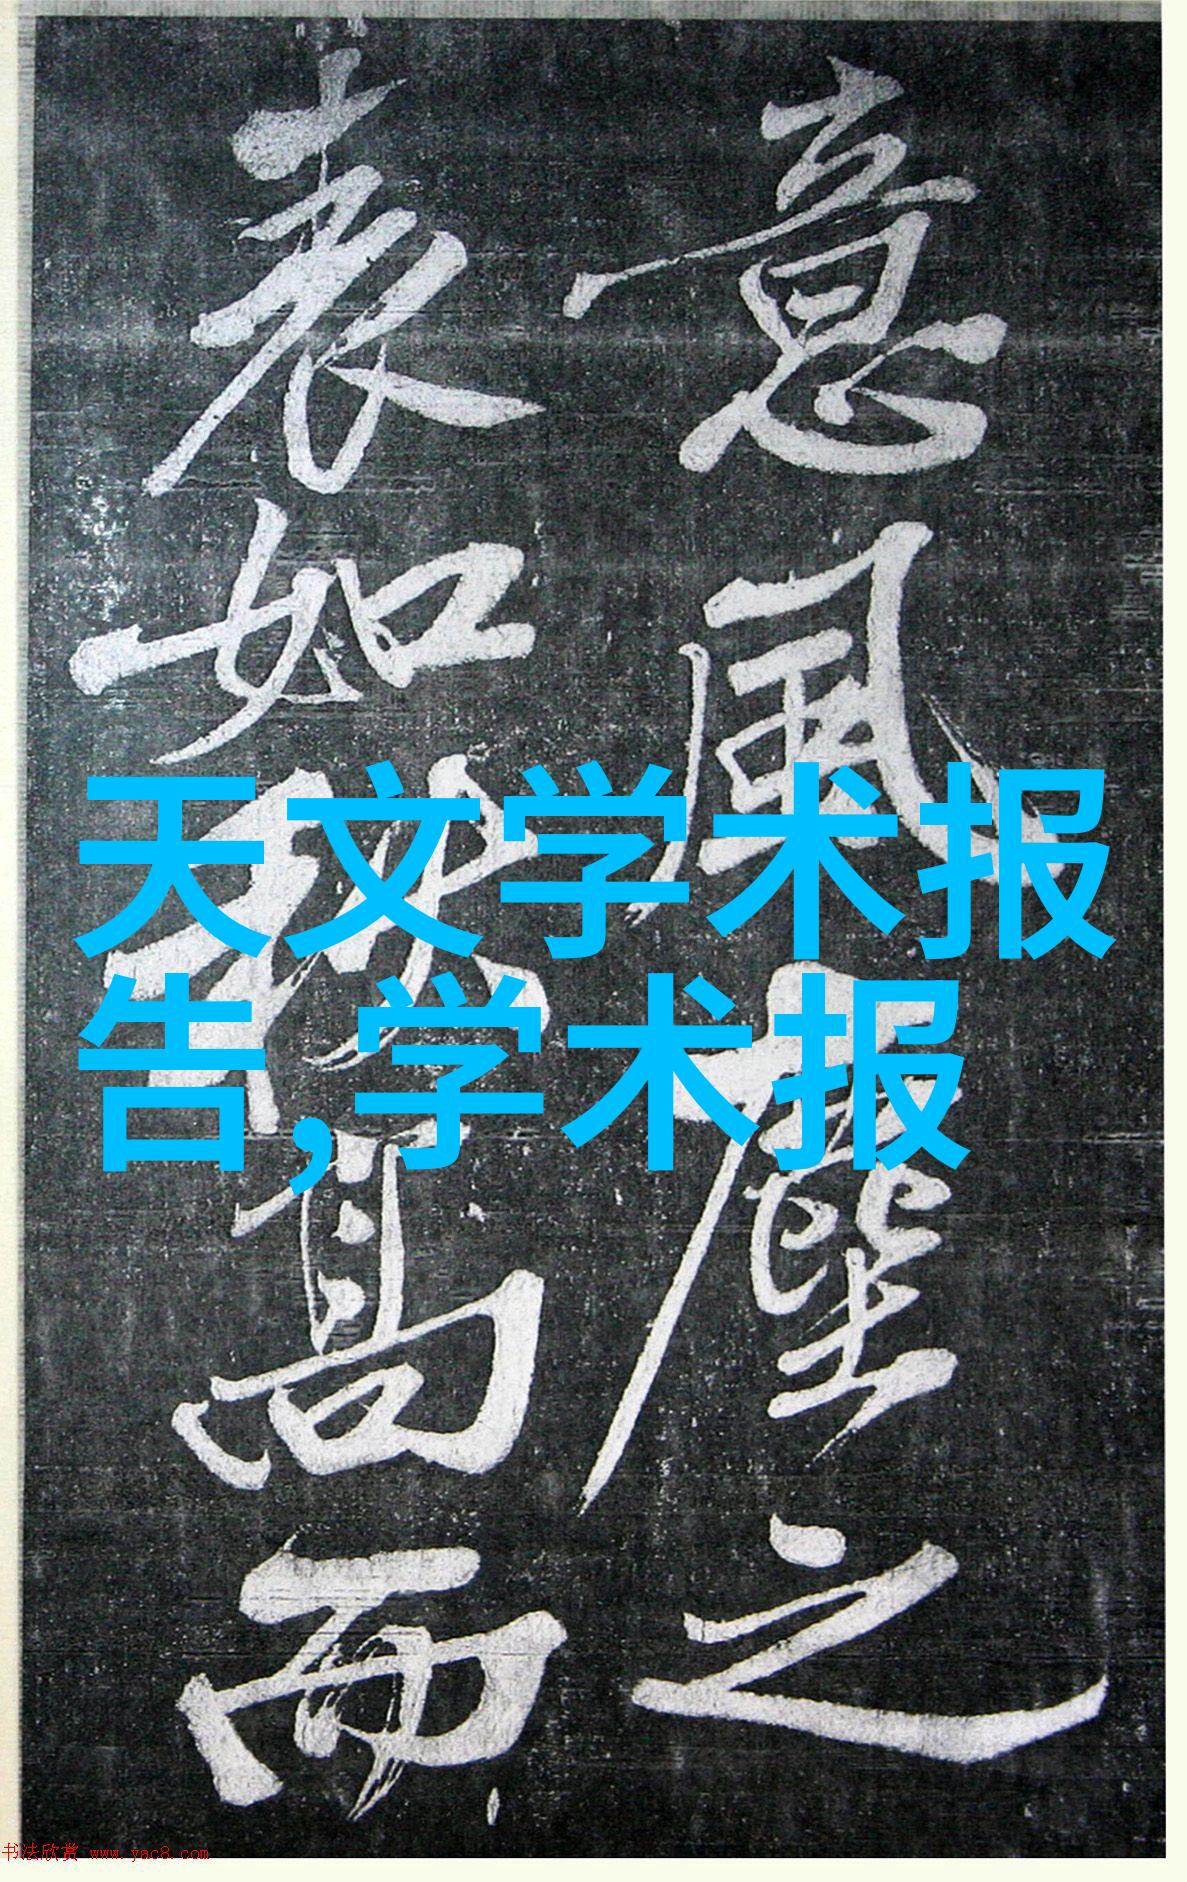 意風塵之
表如高而
天文学术报
告,学术报
书法欣赏 www.yac8.com